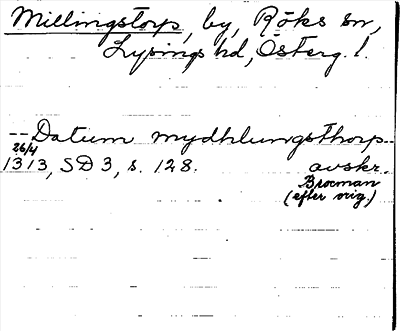 Millingstorp, by, Röks sn,
Lysings hd, Österg. l.
-- Datum mydhlungsthorp --
26/4
1313, SD 3, s. 128. avskr.
Brocman
(efter orig.)